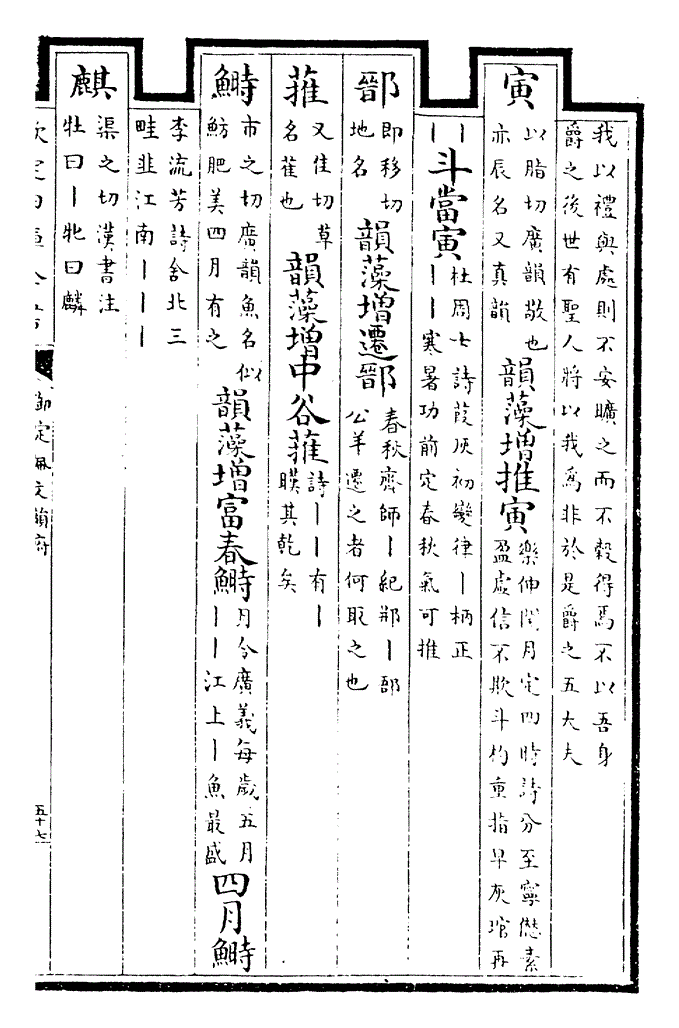 我以禮與處則不安曠之而不穀得焉不以吾身
爵之後世有聖人將以我爲非於是爵之五大夫
寅以脂切廣韻敬也
亦辰名又真韻韻藻增推寅樂伸閏月定四時詩分至寧愆素
盈虛信不欺斗杓重指早灰琯再
丨丨斗當寅杜周士詩葭灰初變律丨柄正
丨丨寒暑功前定春秋氣可推
鄑即移切
地名韻藻增遷鄑春秋齊師丨紀郱丨郚
公羊遷之者何取之也
蓷又隹切草
名萑也韻藻增中谷蓷詩丨丨有丨
暵其乾矣
鰣市之切廣韻魚名似
魴肥美四月有之韻藻增富春鰣月令廣義每歲五月
丨丨江上丨魚最盛四月鰣
李流芳詩舍北三
畦韭江南丨丨丨
麒渠之切漢書注
牡曰丨牝曰麟
御定佩文韻府
五十七